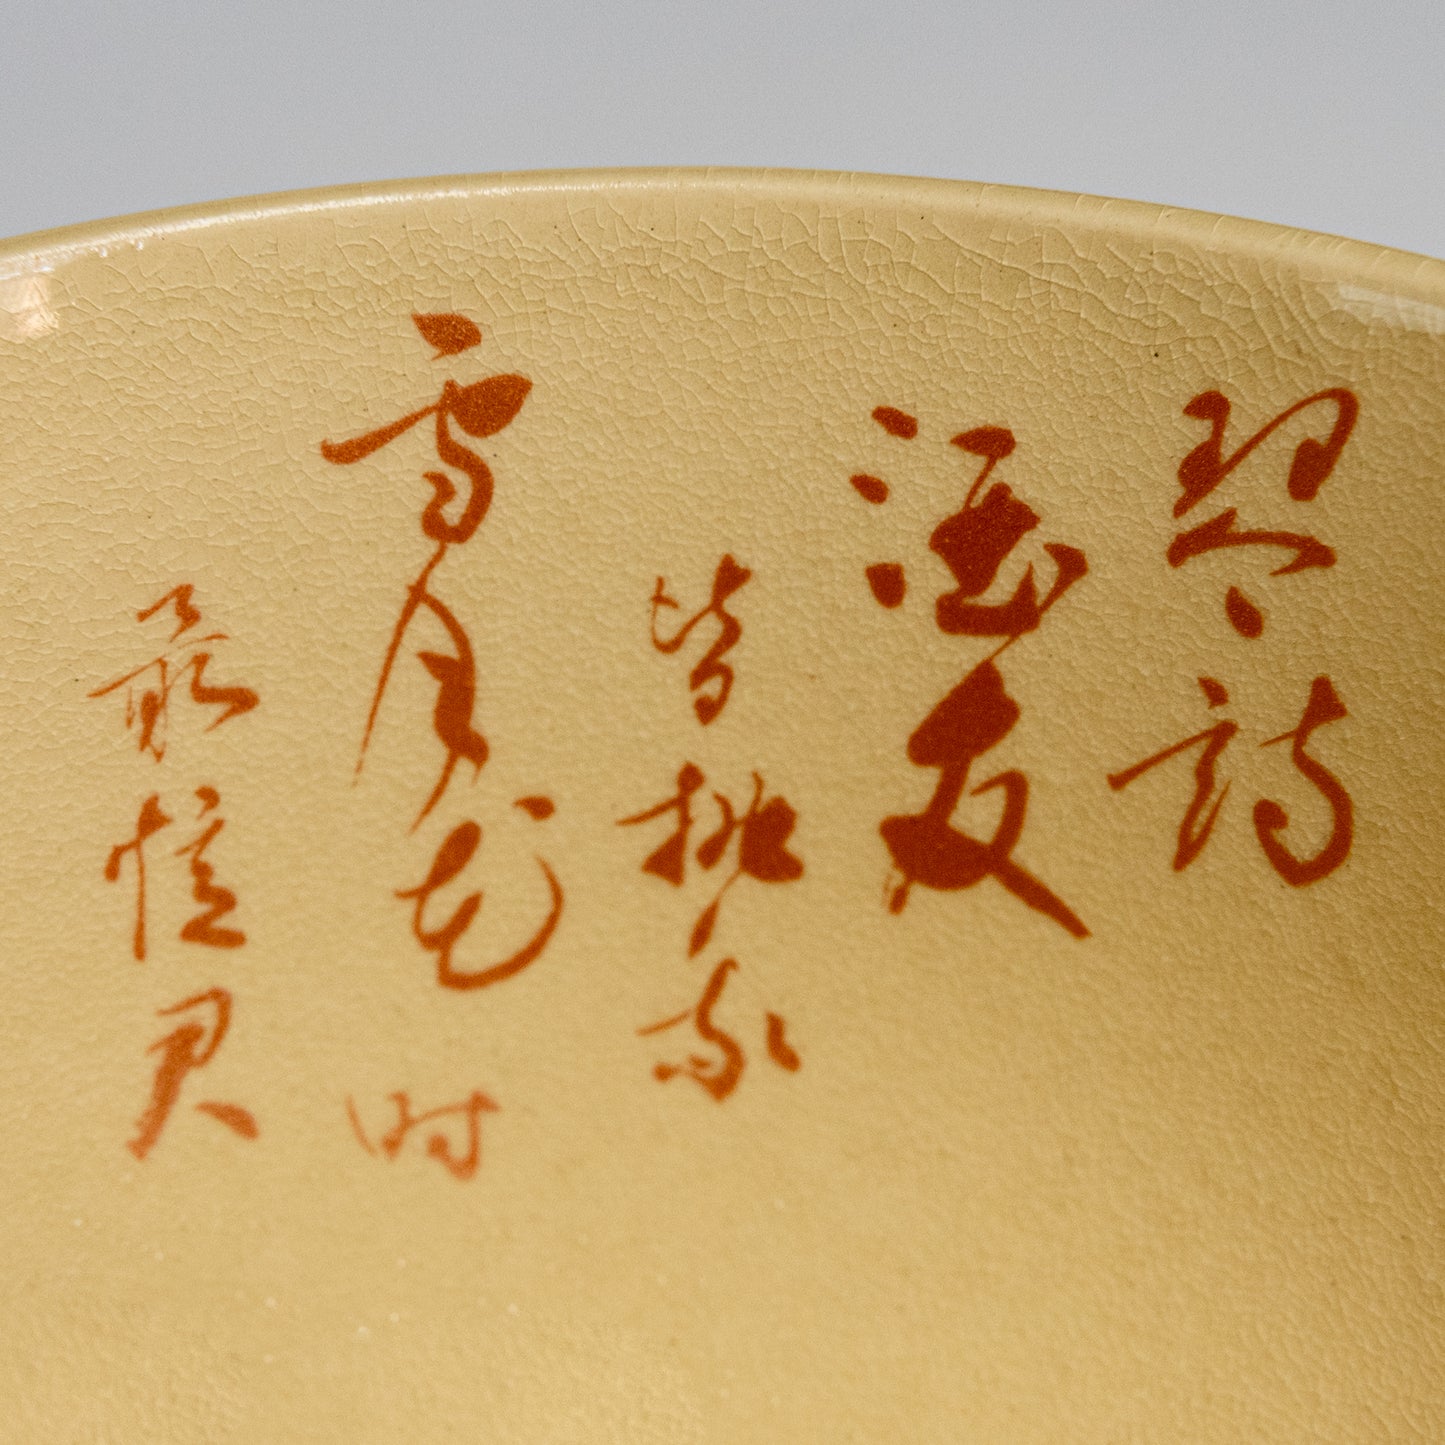 琴詩
酒友
皆抛我
雪月花時
最憶君